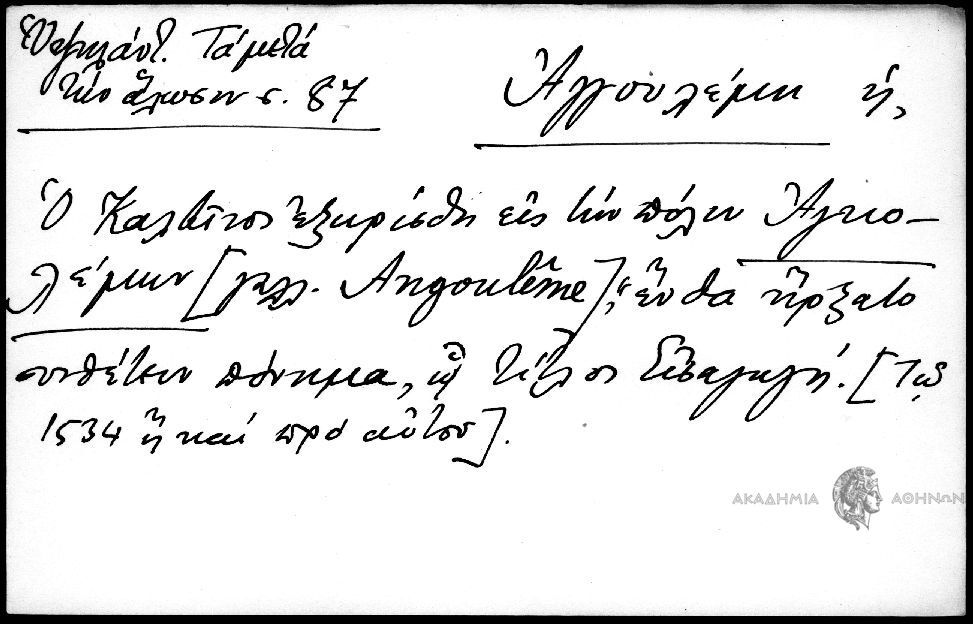 Ὑψηλάντ. Τά μετά
τήν ἅλωσιν σ. 87
Ἀγγουλέμη ἡ,
Ὁ Καλβῖνος ἐξωρίσθη εἰς τήν πόλιν
λέμην [γαλλ. Angoulême], ἔνθα ἤρξατο
συνθέτειν πόνημα, ᾧ τίτλος Εἰσαγωγή. [Τῷ
1534 ἤ καί πρό αὐτοῦ].
ΑΚΑΔΗΜΙΑ ΑΘΗΝΩΝ